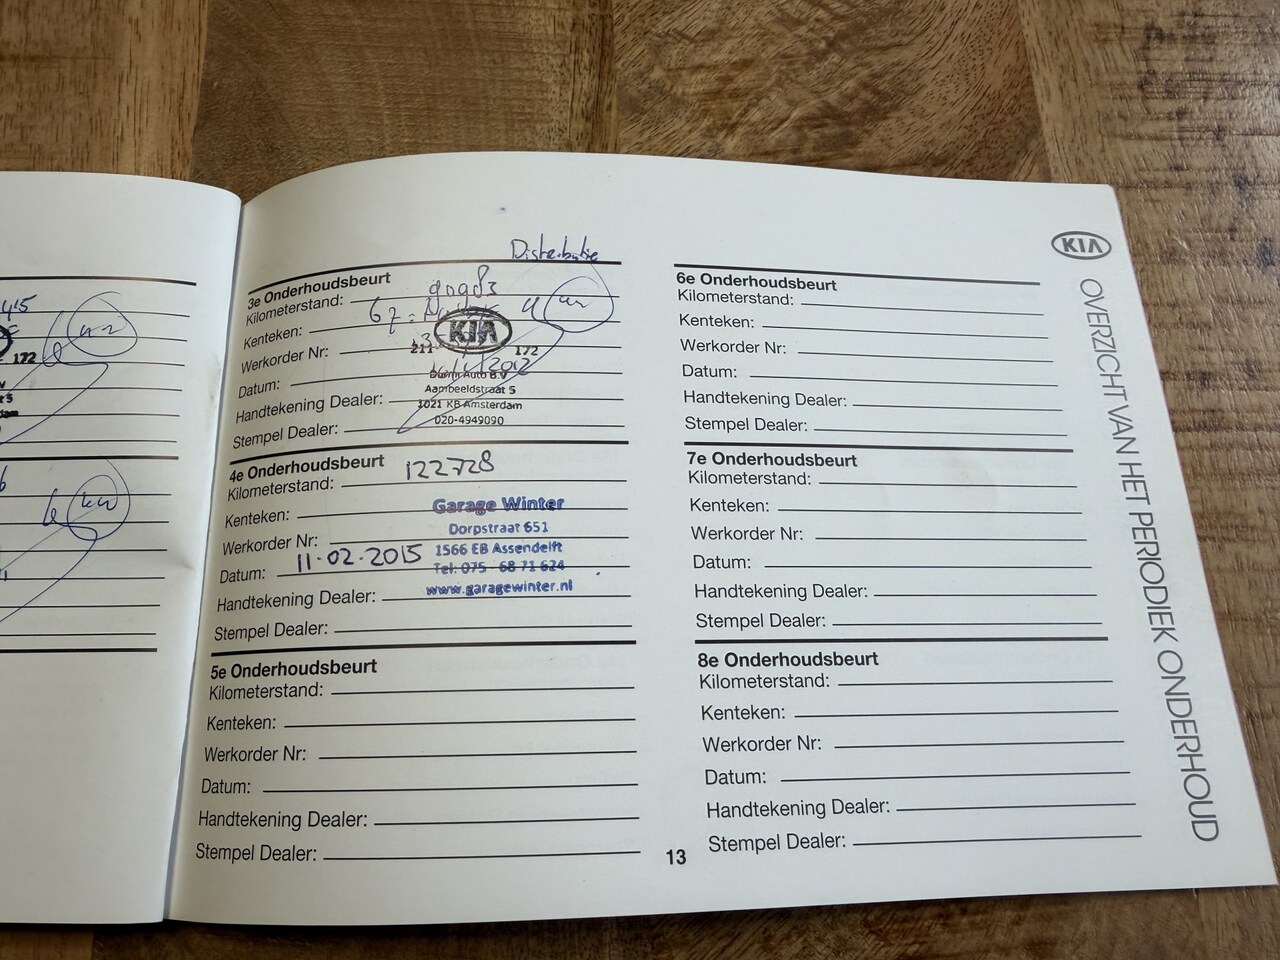 172
Distributie
3e Onderhoudsbeurt
Kilometerstand: 90983
Kenteken:
KIA
Werkorder Nr:
211 172
Datum: 2012
Duern Auto B.V
Handtekening Dealer: Aambeeldstraat 5
1021 KB Amsterdam
Stempel Dealer: 020-4949090
4e Onderhoudsbeurt
Kilometerstand: 122728
Kenteken: Garage Winter
Dorpstraat 651
Werkorder Nr: 1566 EB Assendelft
Datum: 11-02-2015 Tel: 075 68 71 624
Handtekening Dealer: www.garagewinter.nl
Stempel Dealer:
5e Onderhoudsbeurt
Kilometerstand:
Kenteken:
Werkorder Nr:
Datum:
Handtekening Dealer:
Stempel Dealer:
6e Onderhoudsbeurt
Kilometerstand:
Kenteken:
Werkorder Nr:
Datum:
Handtekening Dealer:
Stempel Dealer:
7e Onderhoudsbeurt
Kilometerstand:
Kenteken:
Werkorder Nr:
Datum:
Handtekening Dealer:
Stempel Dealer:
8e Onderhoudsbeurt
Kilometerstand:
Kenteken:
Werkorder Nr:
Datum:
Handtekening Dealer:
Stempel Dealer:
13
KIA
OVERZICHT VAN HET PERIODIEK ONDERHOUD